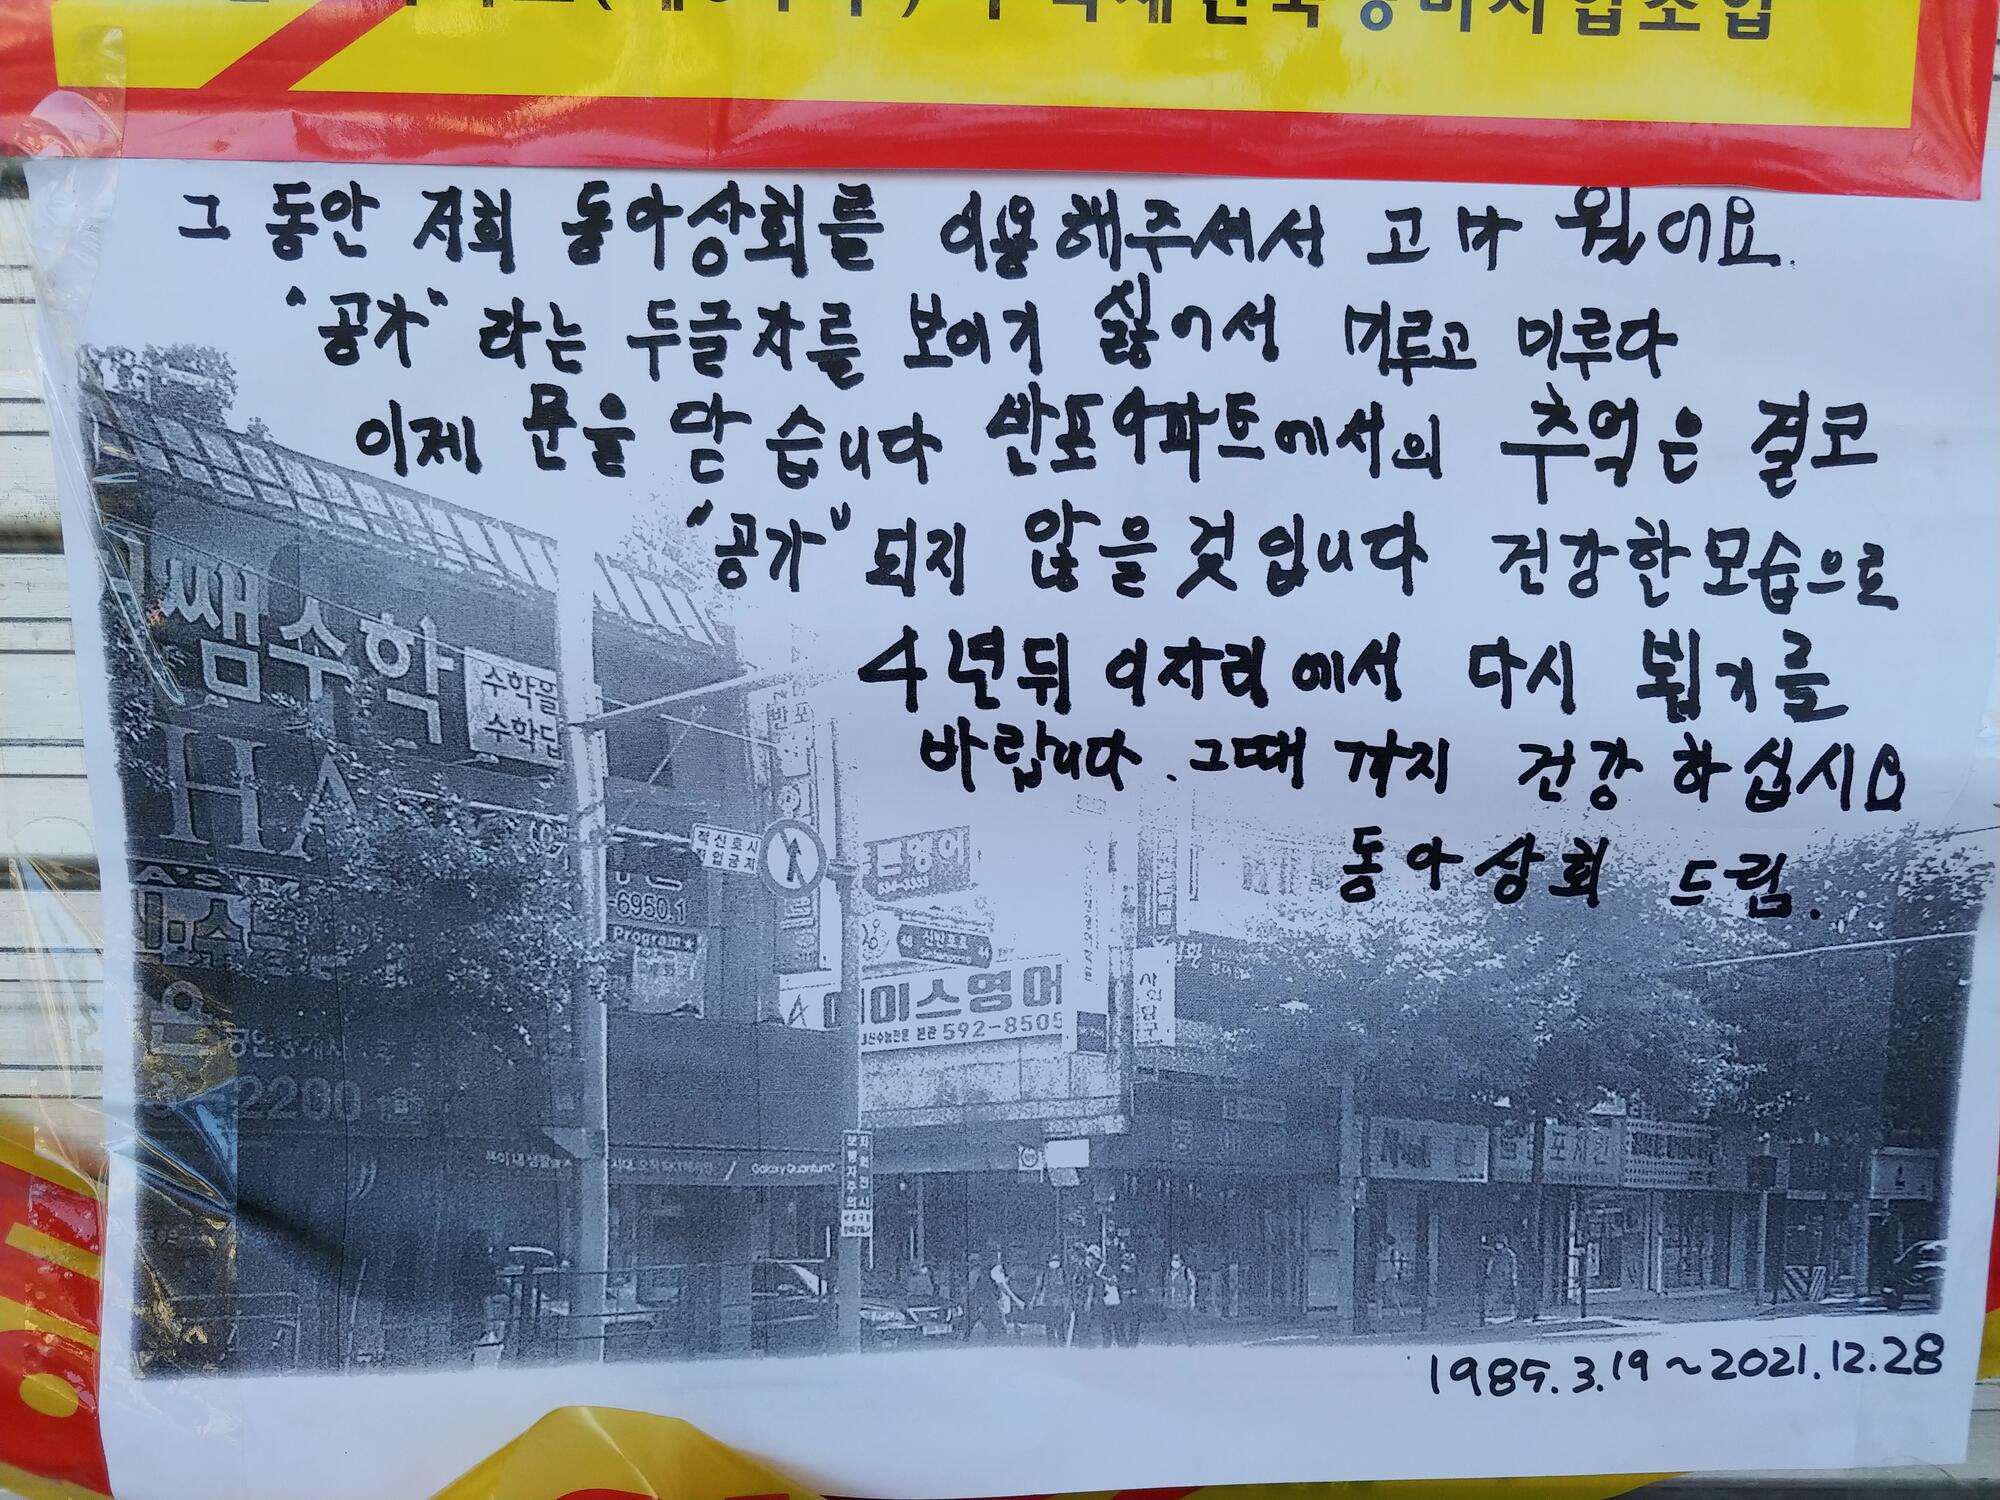 주택재건축정비사업조합
그 동안 저희 동아상회를 이용해주셔서 고마웠어요.
"공가"라는 두글자를 보이기 싫어서 미루고 미루다
이제 문을 닫습니다 반포아파트에서의 추억은 결코
"공가" 되지 않을것입니다 건강한모습으로
4년뒤 이자리에서 다시 뵙기를
바랍니다. 그때까지 건강하십시요
동아상회 드림.
쌤수학
수학을
수학답
HA
적신호시
좌업금지
-6950.1
Program
신반포로
에이스영어
본관 592-8505
2200
Galaxy Quantum2
보행자주의
1985.3.19~2021.12.28